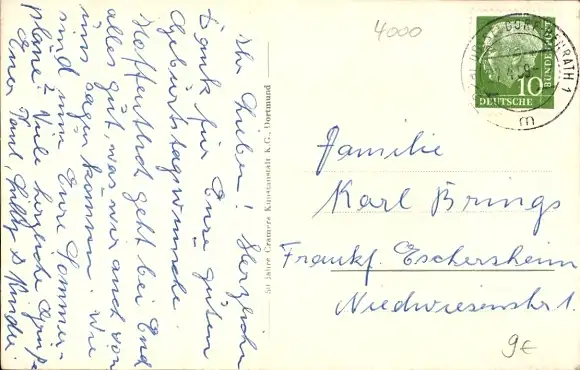 Ihr Lieben! Herzlichen
Dank für Eure guten
Geburtstagswünsche.
Hoffentlich geht bei Euch
alles gut, was wir auch von
uns sagen können. Wie
sind nun Eure Sommer-
pläne? Viele herzliche Grüße
Euer Paul, & Kinder.
50 Jahre Cramers Kunstanstalt K.G., Dortmund
4000
10
DEUTSCHE
BUNDESPOST
Familie
Karl Brings
Frankf. Eschersheim
Niedwiesenstr. 1.
9€